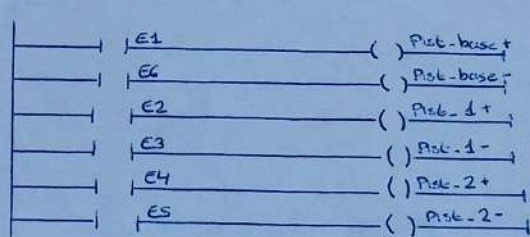 E1 Pist-base+
E6 Pist-base-
E2 Pist-1+
E3 Pist-1-
E4 Pist-2+
E5 Pist-2-